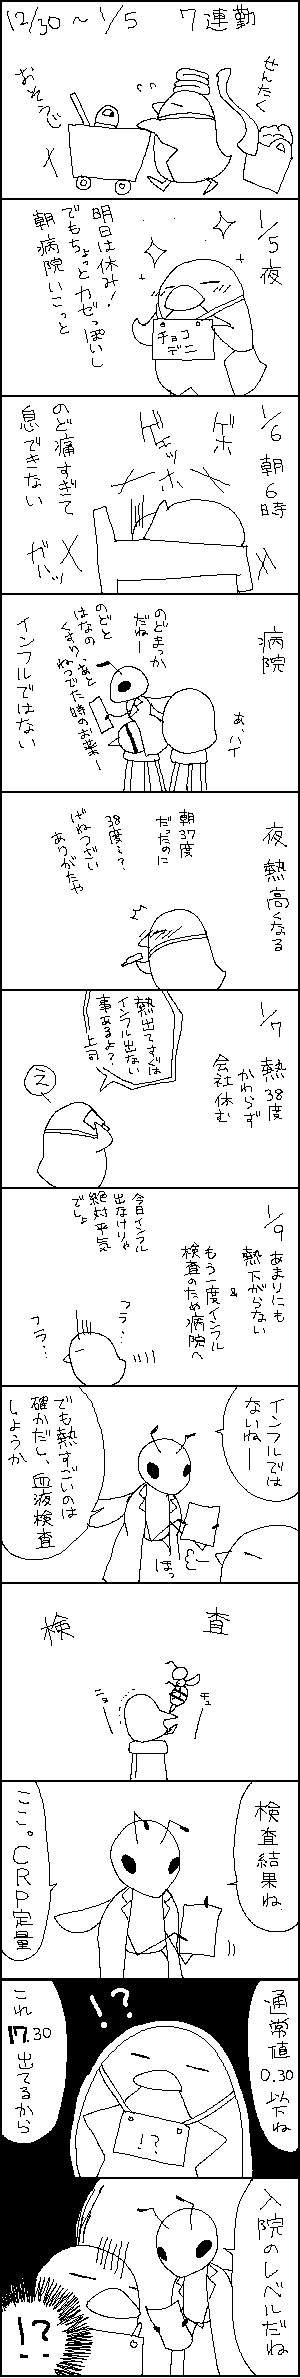 12/30～1/5　7連勤
せんたく
おそうじ
1/5夜
明日は休み!
でもちょっとカゼっぽいし
朝病院いこっと
チョコ
デニ
1/6 朝6時
ゲホ
ゲェッホ
のど痛すぎて
息できない
ガハッ
病院
のどまっか
だねー
のどと
はなの
くすり、あと
ねつでた時のお薬ー
あ、ハイ
インフルではない
夜 熱高くなる
朝37度
だったのに
38度〜?
げねつざい
ありがたや
1/7 熱38度
かわらず
会社休む
熱出てすぐは
インフル出ない
事あるよ?
上司
え
1/9 あまりにも
熱下がらない
&
もう一度インフル
検査のため病院へ
今日インフル
出なけりゃ
絶対平気
でしょ
フラ…
フラ…
インフルでは
ないねー
ほっ
でも熱すごいのは
確かだし、血液検査
しようか
検査
チュー
検査結果ね
ここ。CRP定量
通常値
0.30以下ね
!?
!?
これ
17.30
出てるから
入院のレベルだね
!?